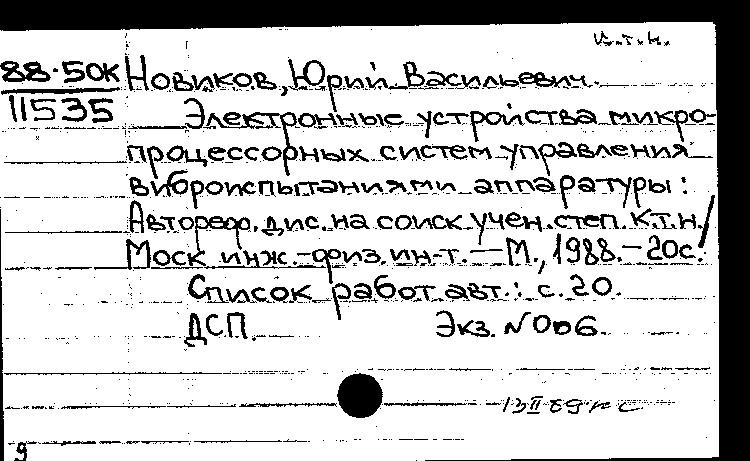 к.т.н.
88-50К Новиков, Юрий Васильевич.
11535 Электронные устройства микро-
процессорных систем управления
виброиспытаниями аппаратуры:
Автореф. дис. на соиск. учен. степ. к.т.н./
Моск инж.-физ. ин-т. — М., 1988. – 20с.
Список работ авт.: с. 20.
ДСП. Экз. N006.
13 II 89
9